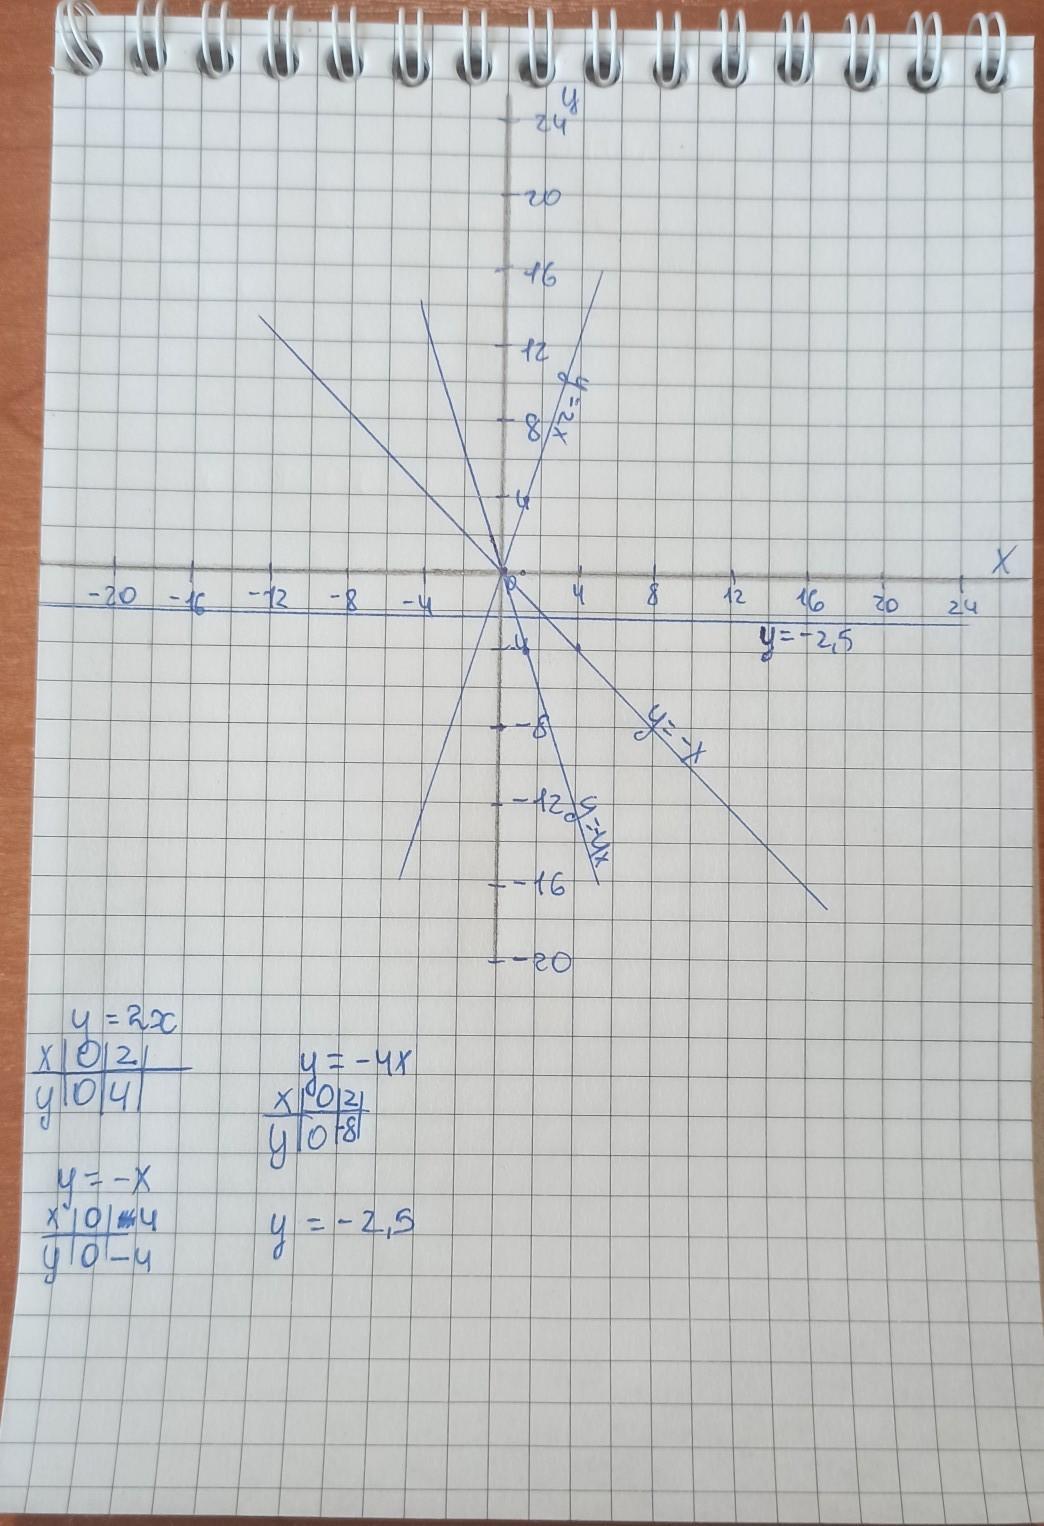 y
24
20
16
12
y=2x
8
4
X
0
-20 -16 -12 -8 -4 4 8 12 16 20 24
y=-2,5
-4
-8
y=-x
-12
y=-4x
-16
-20
y=2x
x|0|2|
y|0|4|
y=-4x
x|0|2|
y|0|-8|
y=-x
x|0|4
y|0|-4
y=-2,5